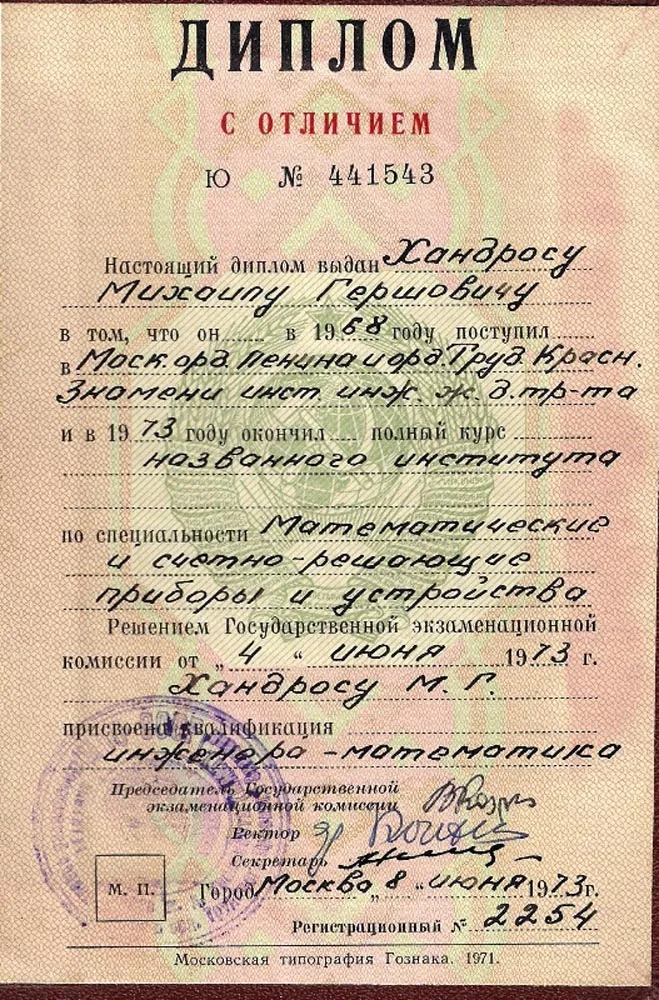 ДИПЛОМ
С ОТЛИЧИЕМ
Ю № 441543
Настоящий диплом выдан Хандросу
Михаилу Гершовичу
в том, что он в 1968 году поступил
в Моск. орд. Ленина и орд. Труд. Красн.
Знамени инст. инж. ж. д. тр-та
и в 1973 году окончил полный курс
названного института
по специальности Математические
и счетно-решающие
приборы и устройства
Решением Государственной экзаменационной
комиссии от „4“ июня 1973 г.
Хандросу М. Г.
присвоена квалификация
инженера-математика
Председатель Государственной
экзаменационной комиссии
Ректор
Секретарь
М. П. Город Москва „8“ июня 1973г.
Регистрационный № 2254
Московская типография Гознака. 1971.